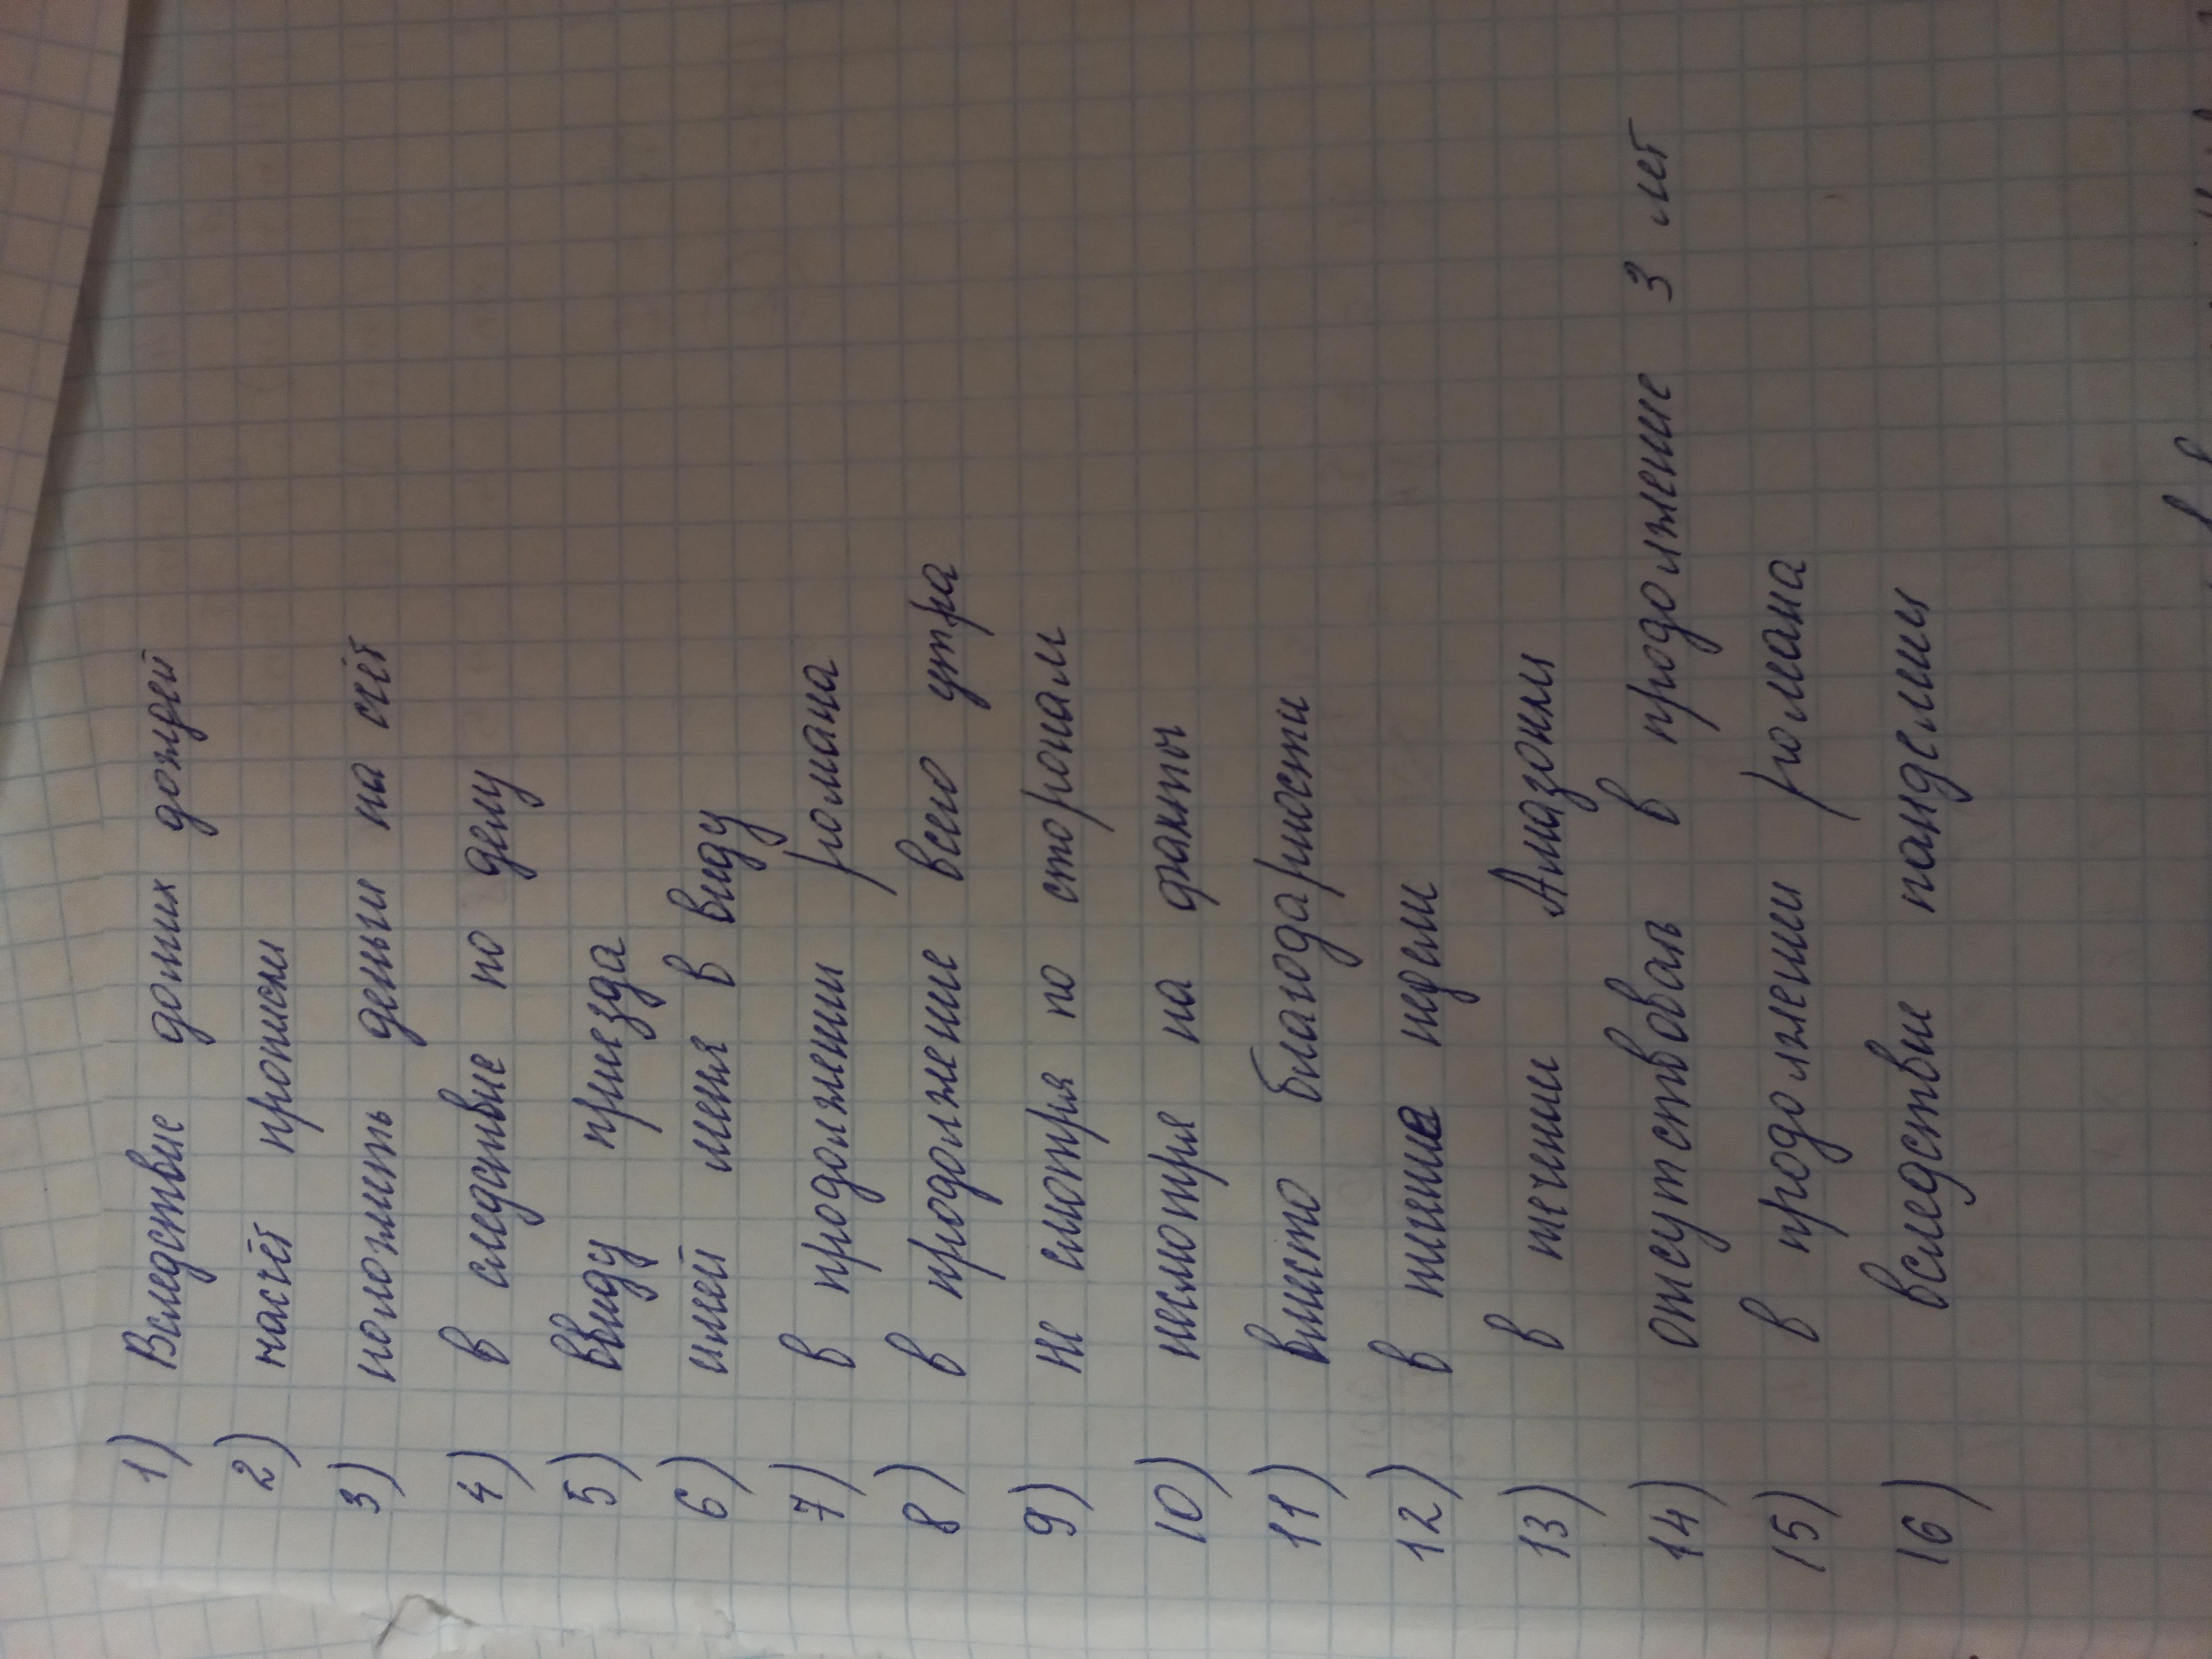 1) Вследствие долгих дождей
2) насчёт прописки
3) положить деньги на счёт
4) в следствие по делу
5) ввиду приезда
6) имей меня в виду
7) в продолжении романа
8) в продолжение всего утра
9) не смотря по сторонам
10) несмотря на факты
11) вместо благодарности
12) в течение недели
13) в течении Амазонки
14) отсутствовал в продолжение 3 лет
15) в продолжении романа
16) вследствие пандемии